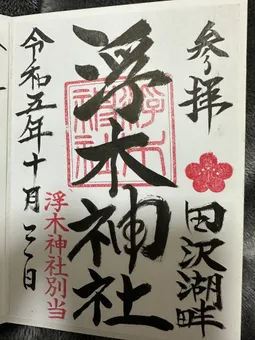 参拝
田沢湖畔
浮木神社
浮木神社
令和五年十月二日
浮木神社別当